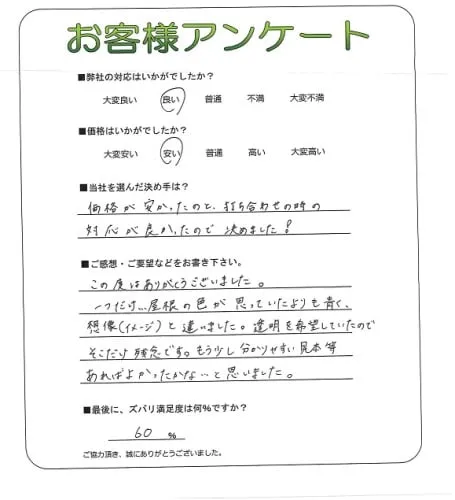 お客様アンケート
■弊社の対応はいかがでしたか？
大変良い 良い 普通 不満 大変不満
■価格はいかがでしたか？
大変安い 安い 普通 高い 大変高い
■当社を選んだ決め手は？
価格が安かったのと、打ち合わせの時の
対応が良かったので決めました！
■ご感想・ご要望などをお書き下さい。
この度はありがとうございました。
一つだけ…屋根の色が思っていたよりも青く、
想像(イメージ)と違いました。透明を希望していたので
そこだけ残念です。もう少し分かりやすい見本等
あればよかったかないと思いました。
■最後に、ズバリ満足度は何%ですか？
60 %
ご協力頂き、誠にありがとうございました。